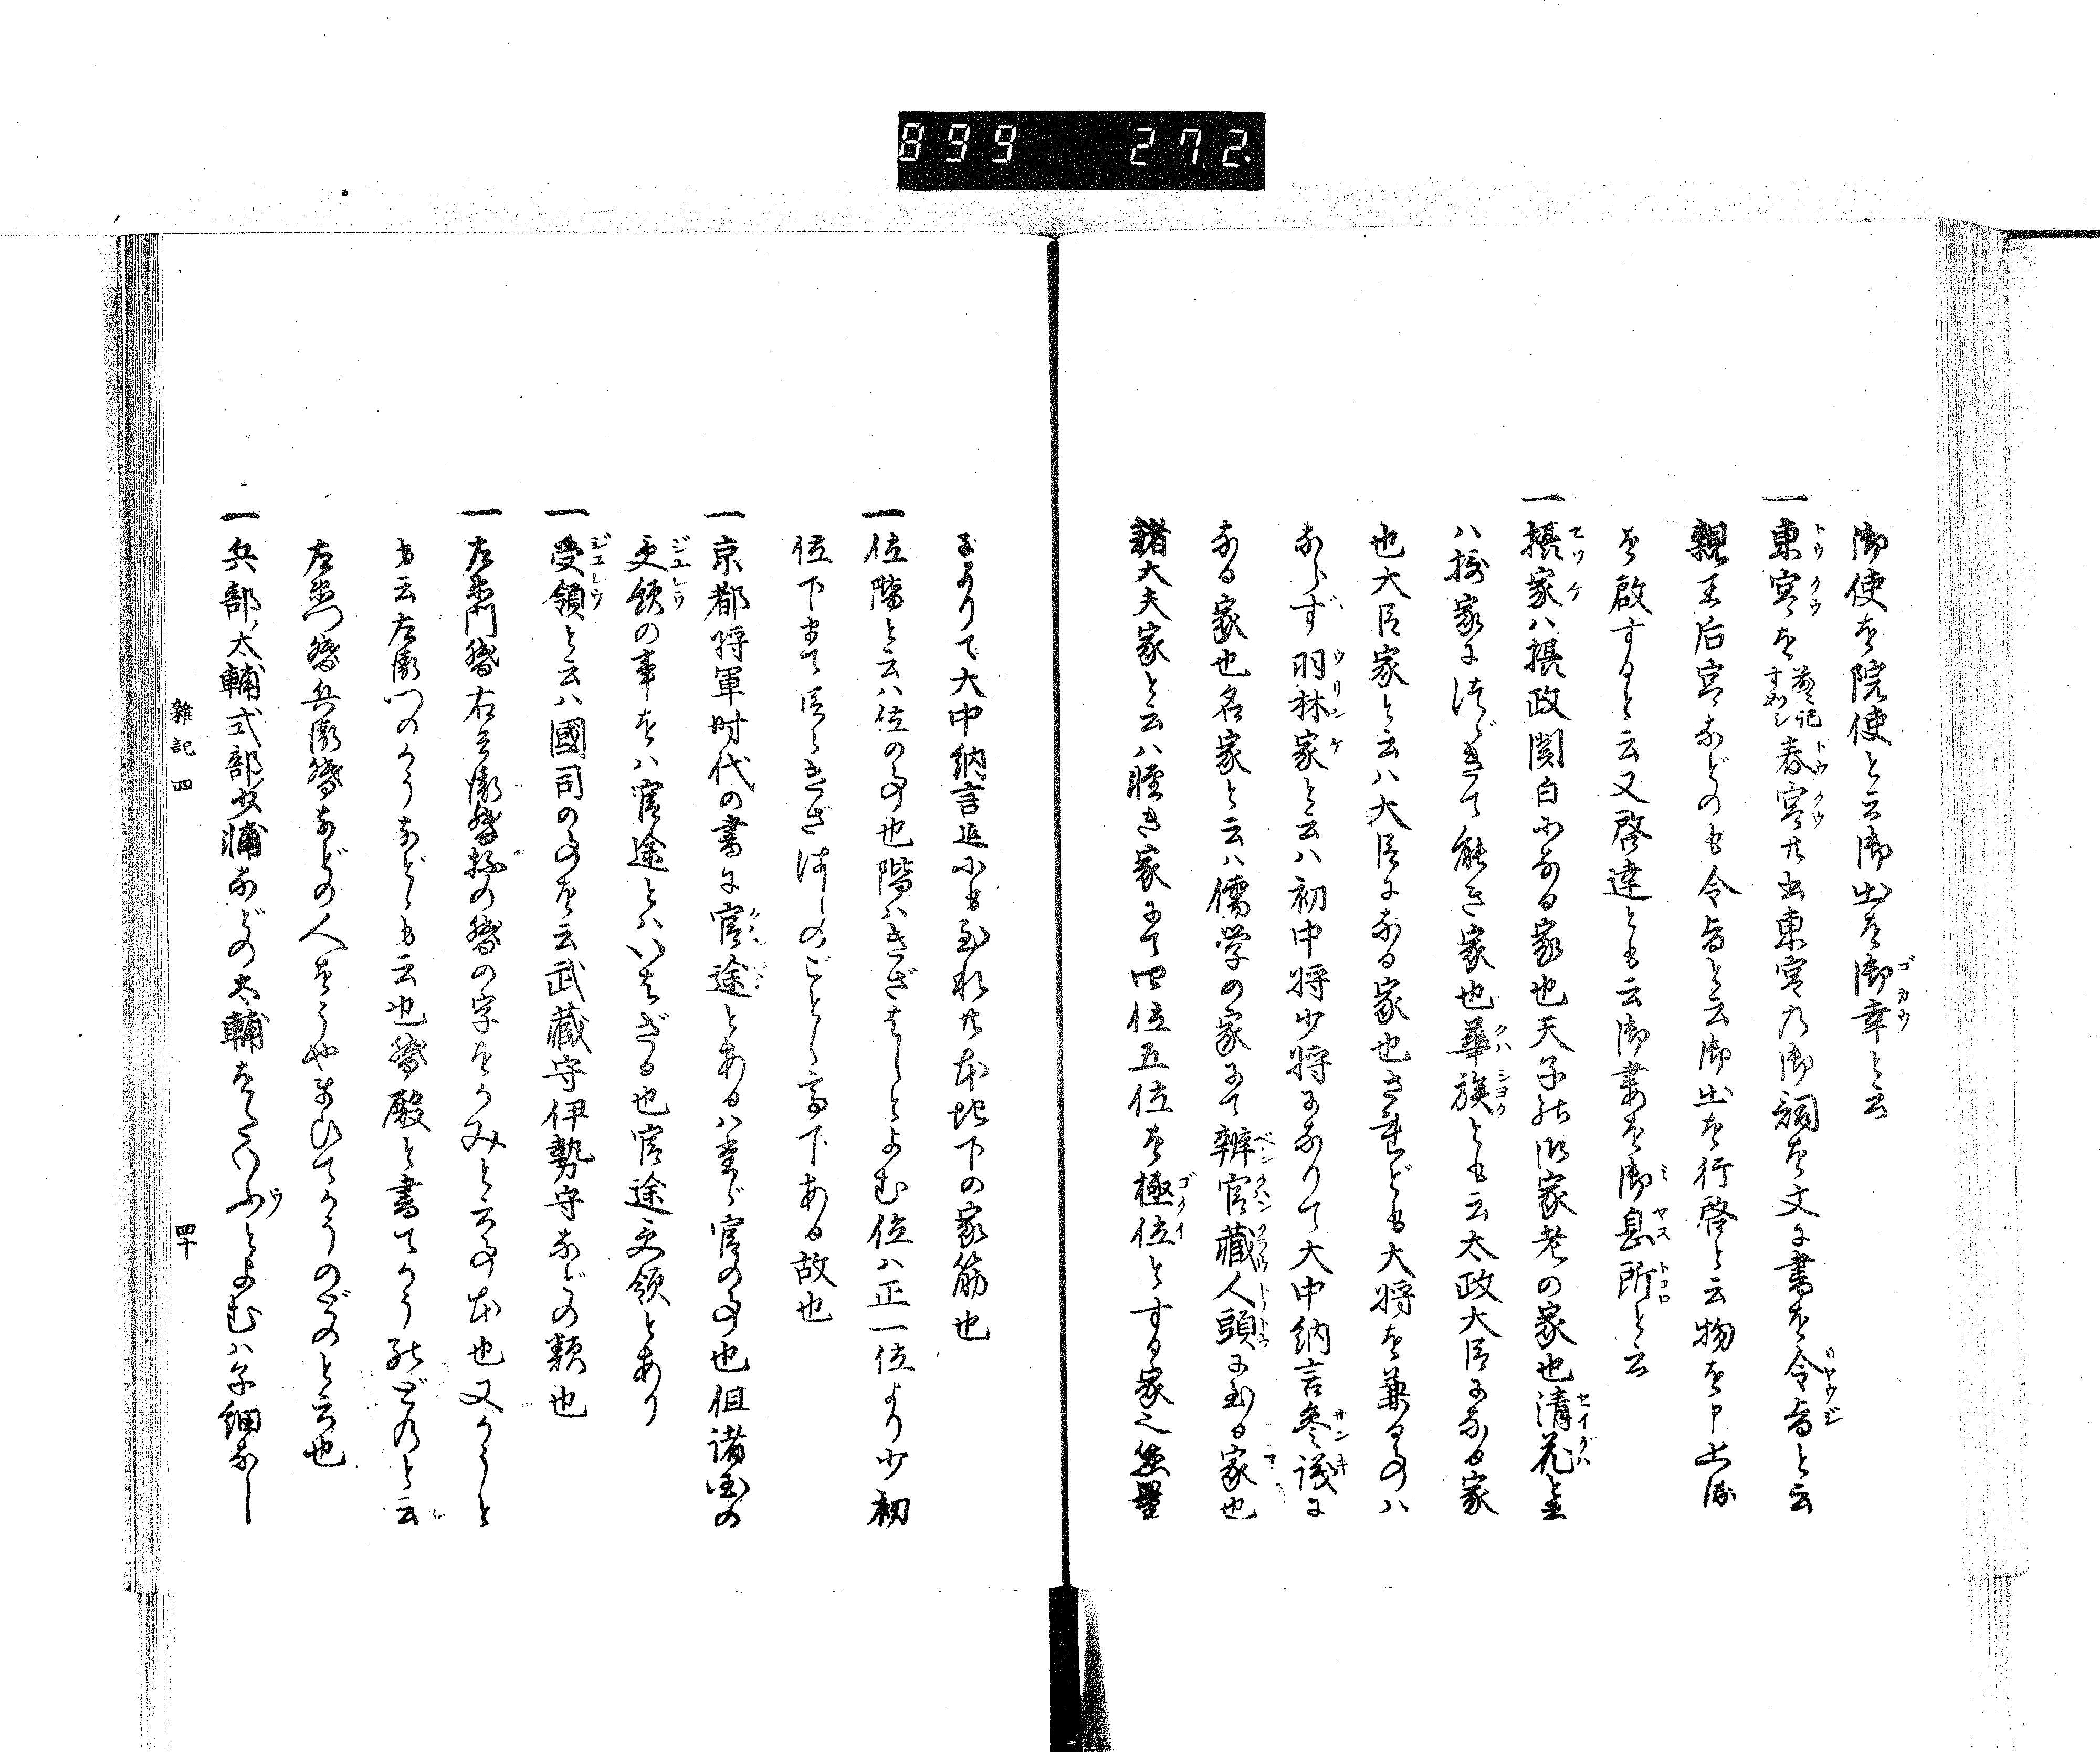 899 272.
御使を院使と云御出を御幸と云
一東宮を春宮共云東宮の御詞を文に書を令旨と云
親王后宮などのも令旨と云御出を行啓と云物を申上る
を啓すると云又啓達とも云御妻を御息所と云
一摂家ハ摂政関白になる家也天子の御家老の家也清花と云
ハ摂家につゞきて能き家也華族とも云太政大臣になる家
也大臣家と云ハ大臣になる家也されども大将を兼る事ハ
ならず羽林家と云ハ初中将少将になりて大中納言参議に
なる家也名家と云ハ儒学の家にて辨官蔵人頭に至る家也
諸大夫家と云ハ軽き家にて四位五位を極位とする家也
によりて大中納言迄にも至れ共本地下の家筋也
一位階と云ハ位の事也階ハきざはしとよむ位ハ正一位より少初
位下まで段々きざはしのごとく高下ある故也
一京都将軍時代の書に官途とあるハ官の事也但諸国の
受領の事をハ官途とハいはざる也官途受領とあり
一受領と云ハ國司の事を云武蔵守伊勢守などの類也
一左衛門督右兵衛督抔の督の字をかみと云事本也又かうと
も云左衛門のかうなどゝも云也督殿と書てかうのとのと云
左衛門督兵衛督などの人をうやまひてかうのとのと云也
一兵部太輔式部少輔などの太輔をたいふとよむハ子細なし
雜記四
四十